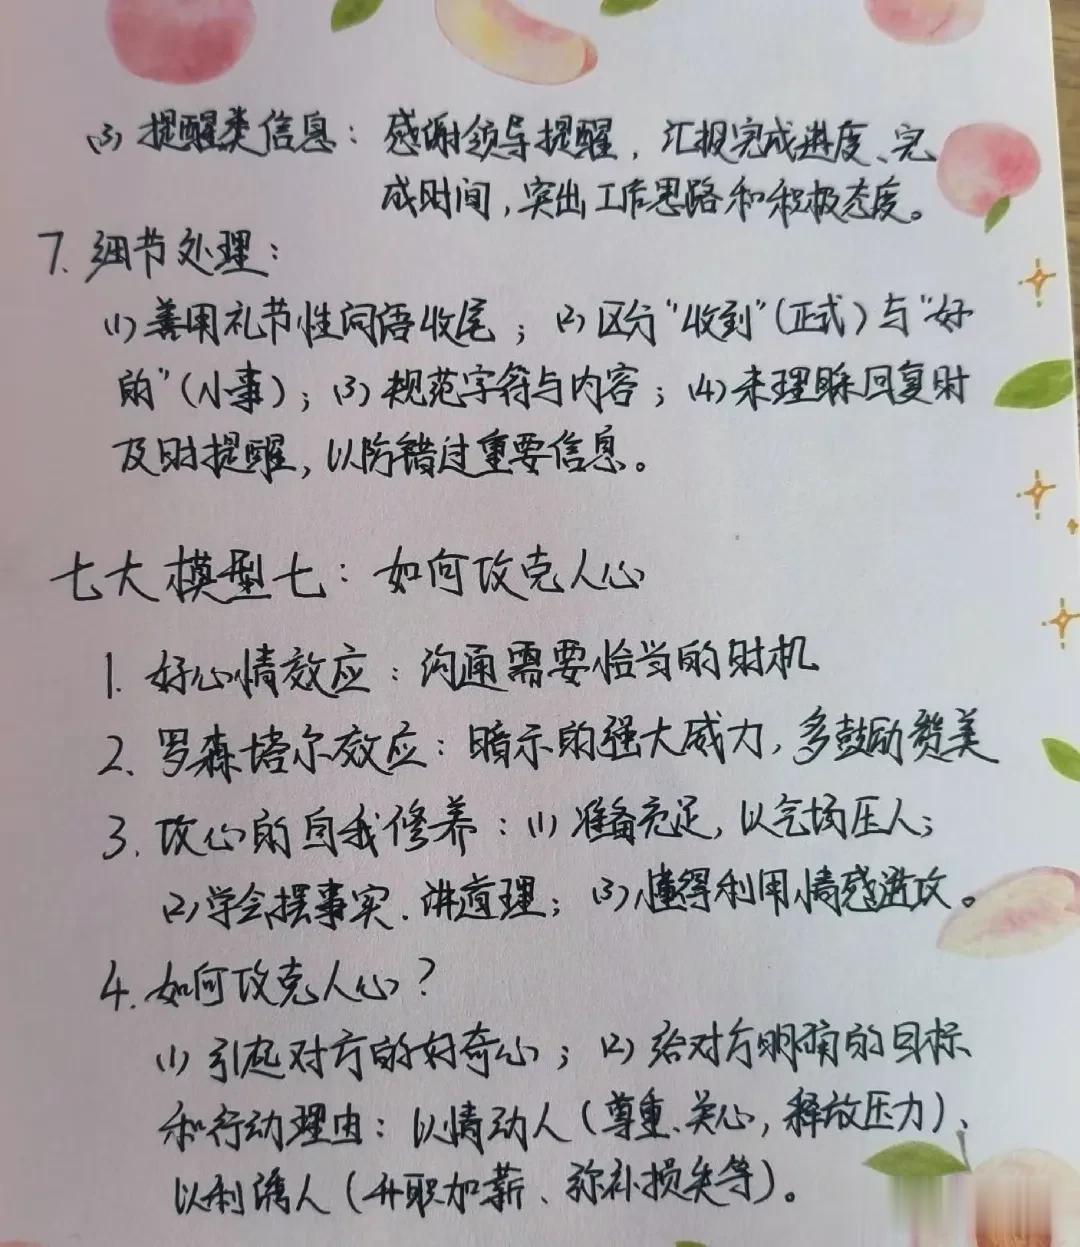 (3) 提醒类信息：感谢领导提醒，汇报完成进度、完
成时间，突出工作思路和积极态度。
7. 细节处理：
(1) 善用礼节性词语收尾；(2) 区分“收到”(正式)与“好
的”(小事)；(3) 规范字符与内容；(4) 未理睬回复时
及时提醒，以防错过重要信息。
七大模型七：如何攻克人心
1. 好心情效应：沟通需要恰当的时机
2. 罗森塔尔效应：暗示的强大威力，多鼓励赞美
3. 攻心的自我修养：(1) 准备充足，以气场压人；
(2) 学会摆事实、讲道理；(3) 懂得利用情感进攻。
4. 如何攻克人心？
(1) 引起对方的好奇心；(2) 给对方明确的目标
和行动理由：以情动人（尊重、关心，释放压力）、
以利诱人（升职加薪、弥补损失等）。